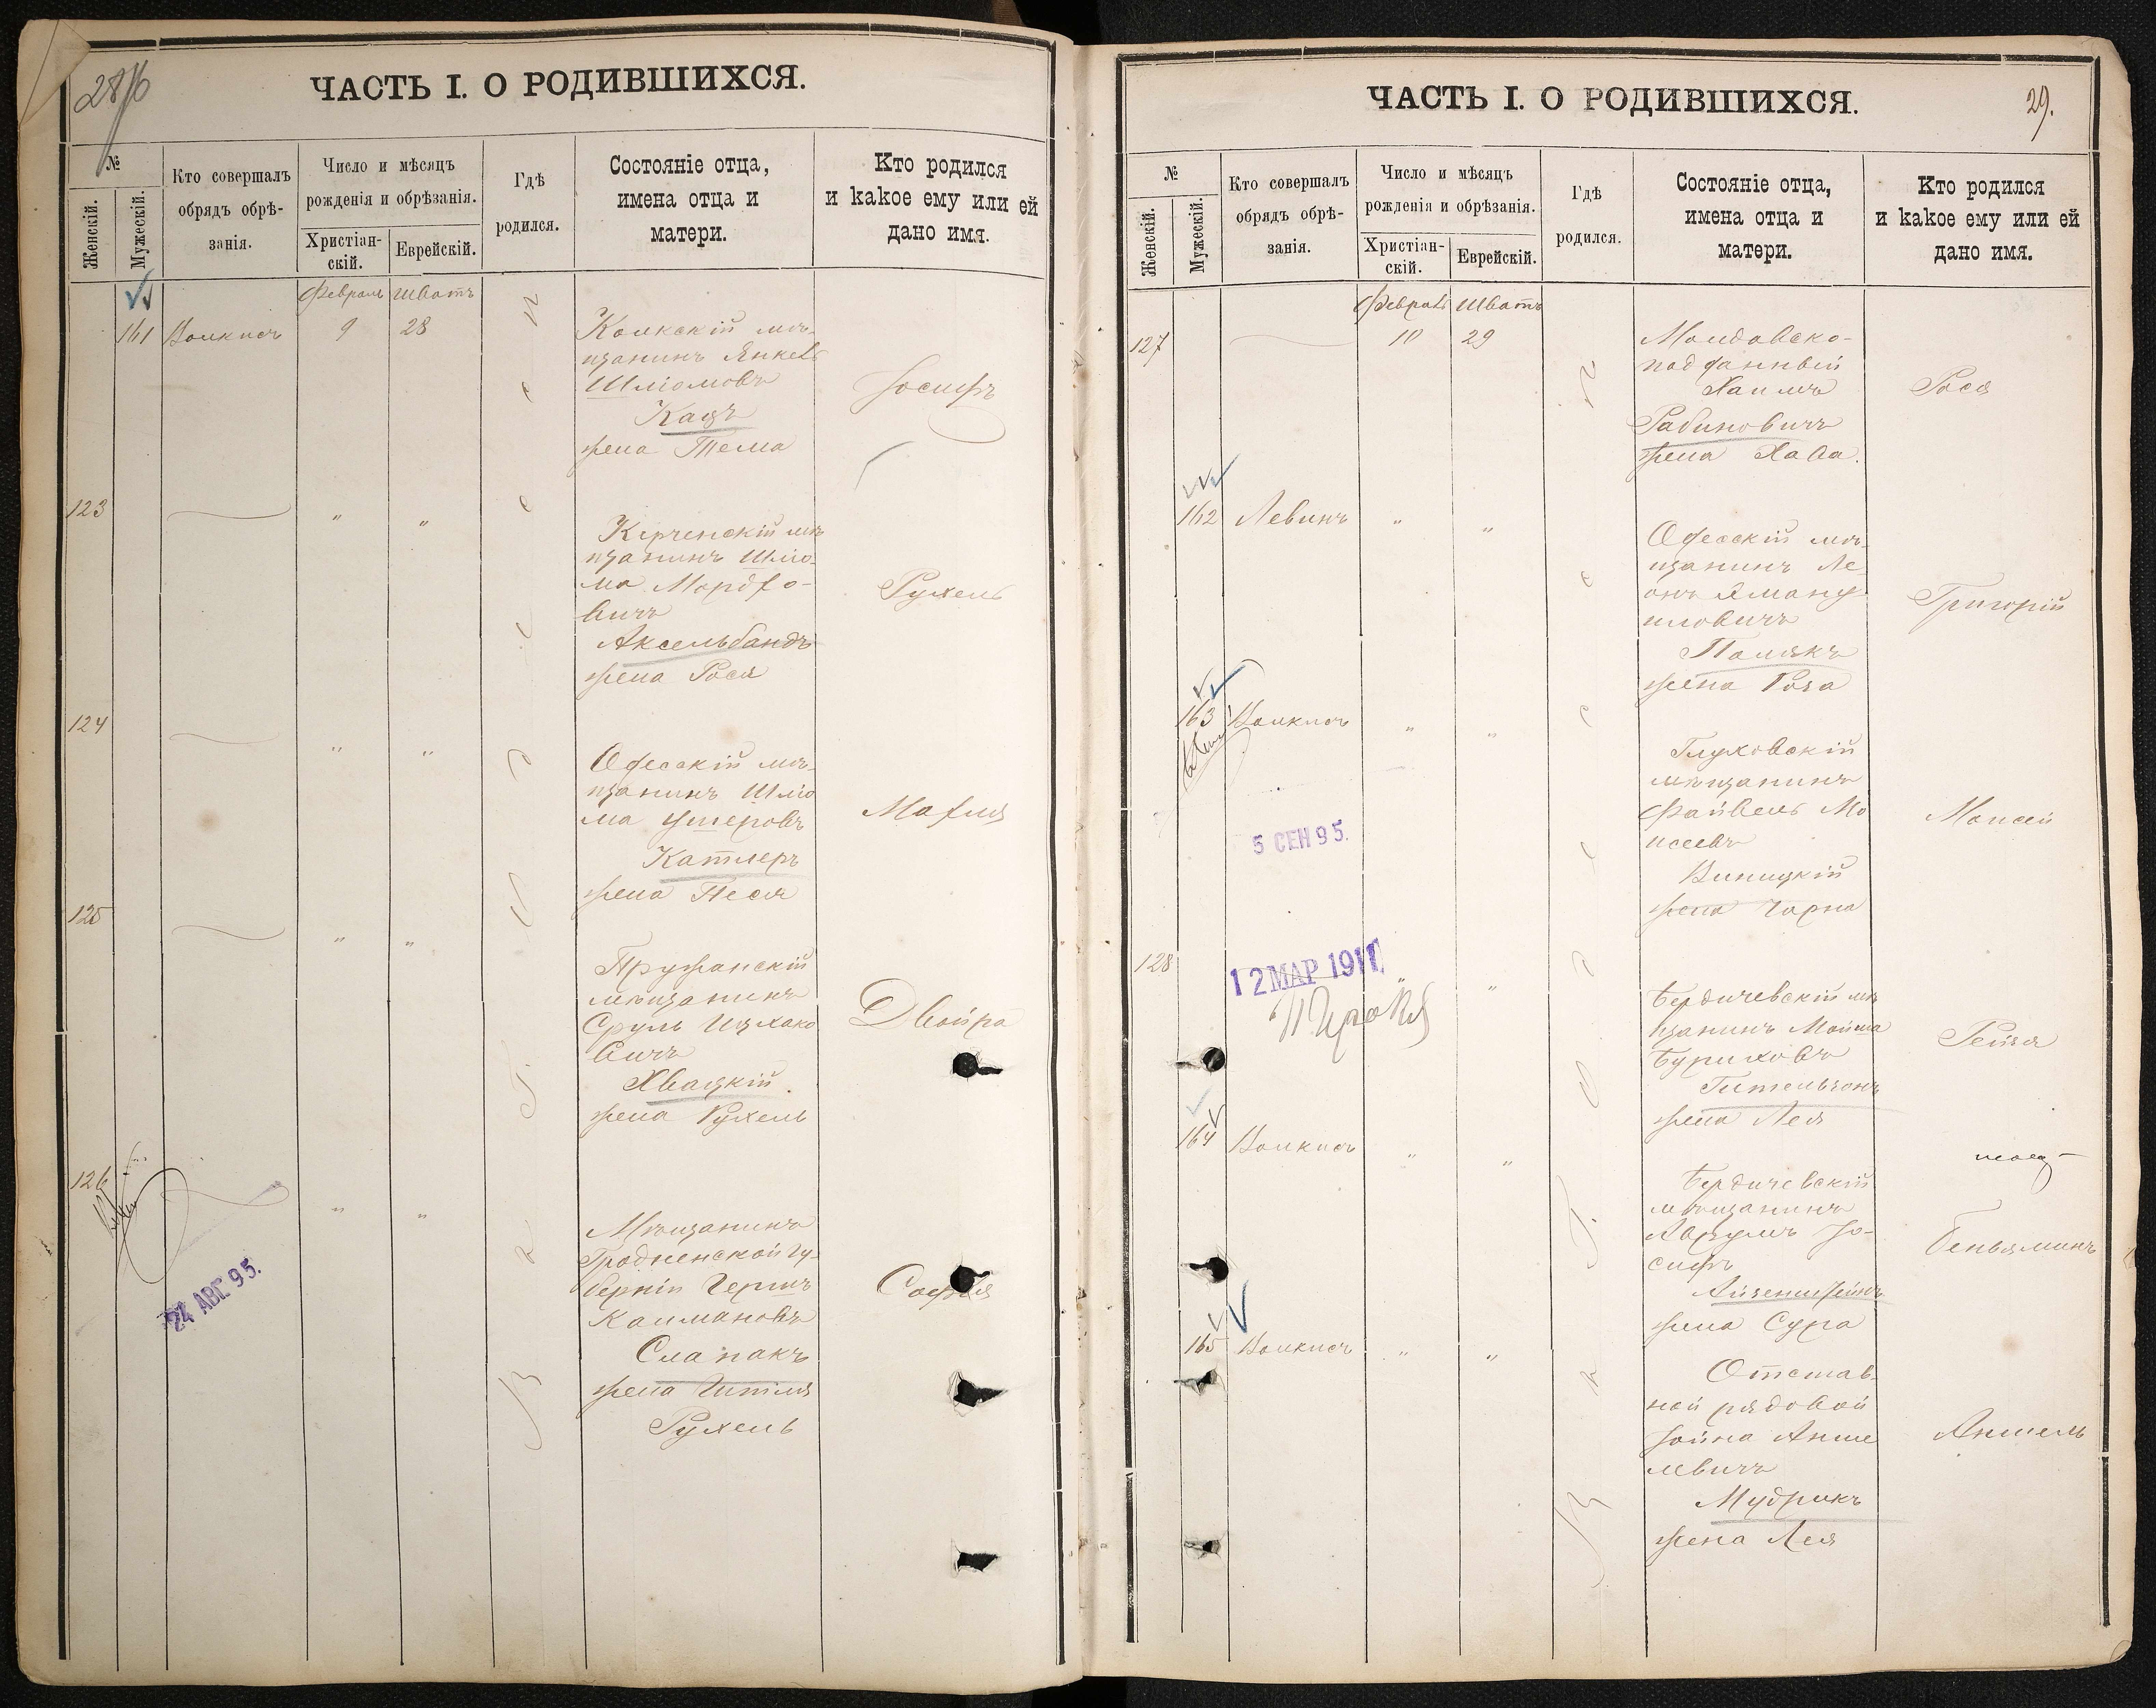 ЧАСТЬ I. О РОДИВШИХСЯ.
№
Женскій.
Мужескій.
Кто совершалъ
обрядъ обрѣ-
занія.
Число и мѣсяцъ
рожденія и обрѣзанія.
Христіан-
скій.
Еврейскій.
Гдѣ
родился.
Состояніе отца,
имена отца и
матери.
Кто родился
и какое ему или ей
дано имя.
Февраль Шватъ
161 9 28
мѣ-
щанинъ Янкель
Шліомовъ
Кацъ
жена Тема
Іосифъ
123 " "
Керченскій мѣ
щанинъ Шліо-
ма Мордко-
вичъ
Аксельбандъ
жена Рося
Рухель
124 " "
Одесскій мѣ-
щанинъ Шліо
ма Ушеровъ
Катлеръ
жена Песя
Малня
125 " "
Пружанскій
мѣщанинъ
Сруль Ицхако
вичъ
Хвацкій
жена Рухель
Двойра
126 " "
Мѣщанинъ
Гродненской гу-
берніи Гершъ
Калмановъ
Слапакъ
жена
Рухель
Софья
24 АВГ. 95.
В ъ Г. О д е с с ѣ
ЧАСТЬ I. О РОДИВШИХСЯ.
29.
№
Женскій.
Мужескій.
Кто совершалъ
обрядъ обрѣ-
занія.
Число и мѣсяцъ
рожденія и обрѣзанія.
Христіан-
скій.
Еврейскій.
Гдѣ
родился.
Состояніе отца,
имена отца и
матери.
Кто родился
и какое ему или ей
дано имя.
Февраль Шватъ
127 10 29
Молдавско-
подданный
Хаимъ
Рабиновичъ
жена Хава.
Рося
162 Левинъ " "
Одесскій мѣ-
щанинъ Ле
онъ Эману
иловичъ
Полякъ
жена Роза
Григорій
163 " "
Глуховскій
мѣщанинъ
Файвель Мо
исеевъ
Виницкій
жена Чарна
Моисей
5 СЕН 95.
128 " "
12 МАР 1911
Бердичевскій мѣ
щанинъ Мойша
Буриховъ
Гительзонъ
жена Лея
Рейзя
164 " "
Бердичевскій
мѣщанинъ
Іо-
сифъ
Айзенштейнъ
жена Сура
Беньяминъ
165 " "
Отстав-
ной рядовой
Іойна Анше
левичъ
Мудрикъ
жена Лея
Аншель
В ъ Г. О д е с с ѣ